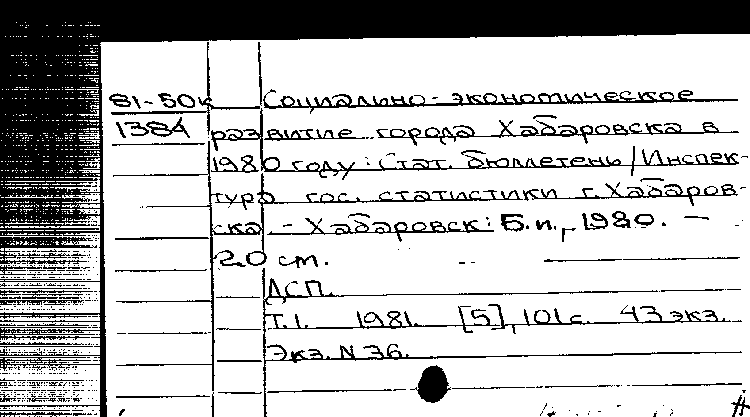 81-50к Социально-экономическое
1384 развитие города Хабаровска в
1980 году: Стат. бюллетень/Инспек-
тура гос. статистики г. Хабаров-
ска. - Хабаровск: Б.и., 1980. -
20 см.
ДСП.
Т.1. 1981. [5], 101с. 43 экз.
Экз. N 36.